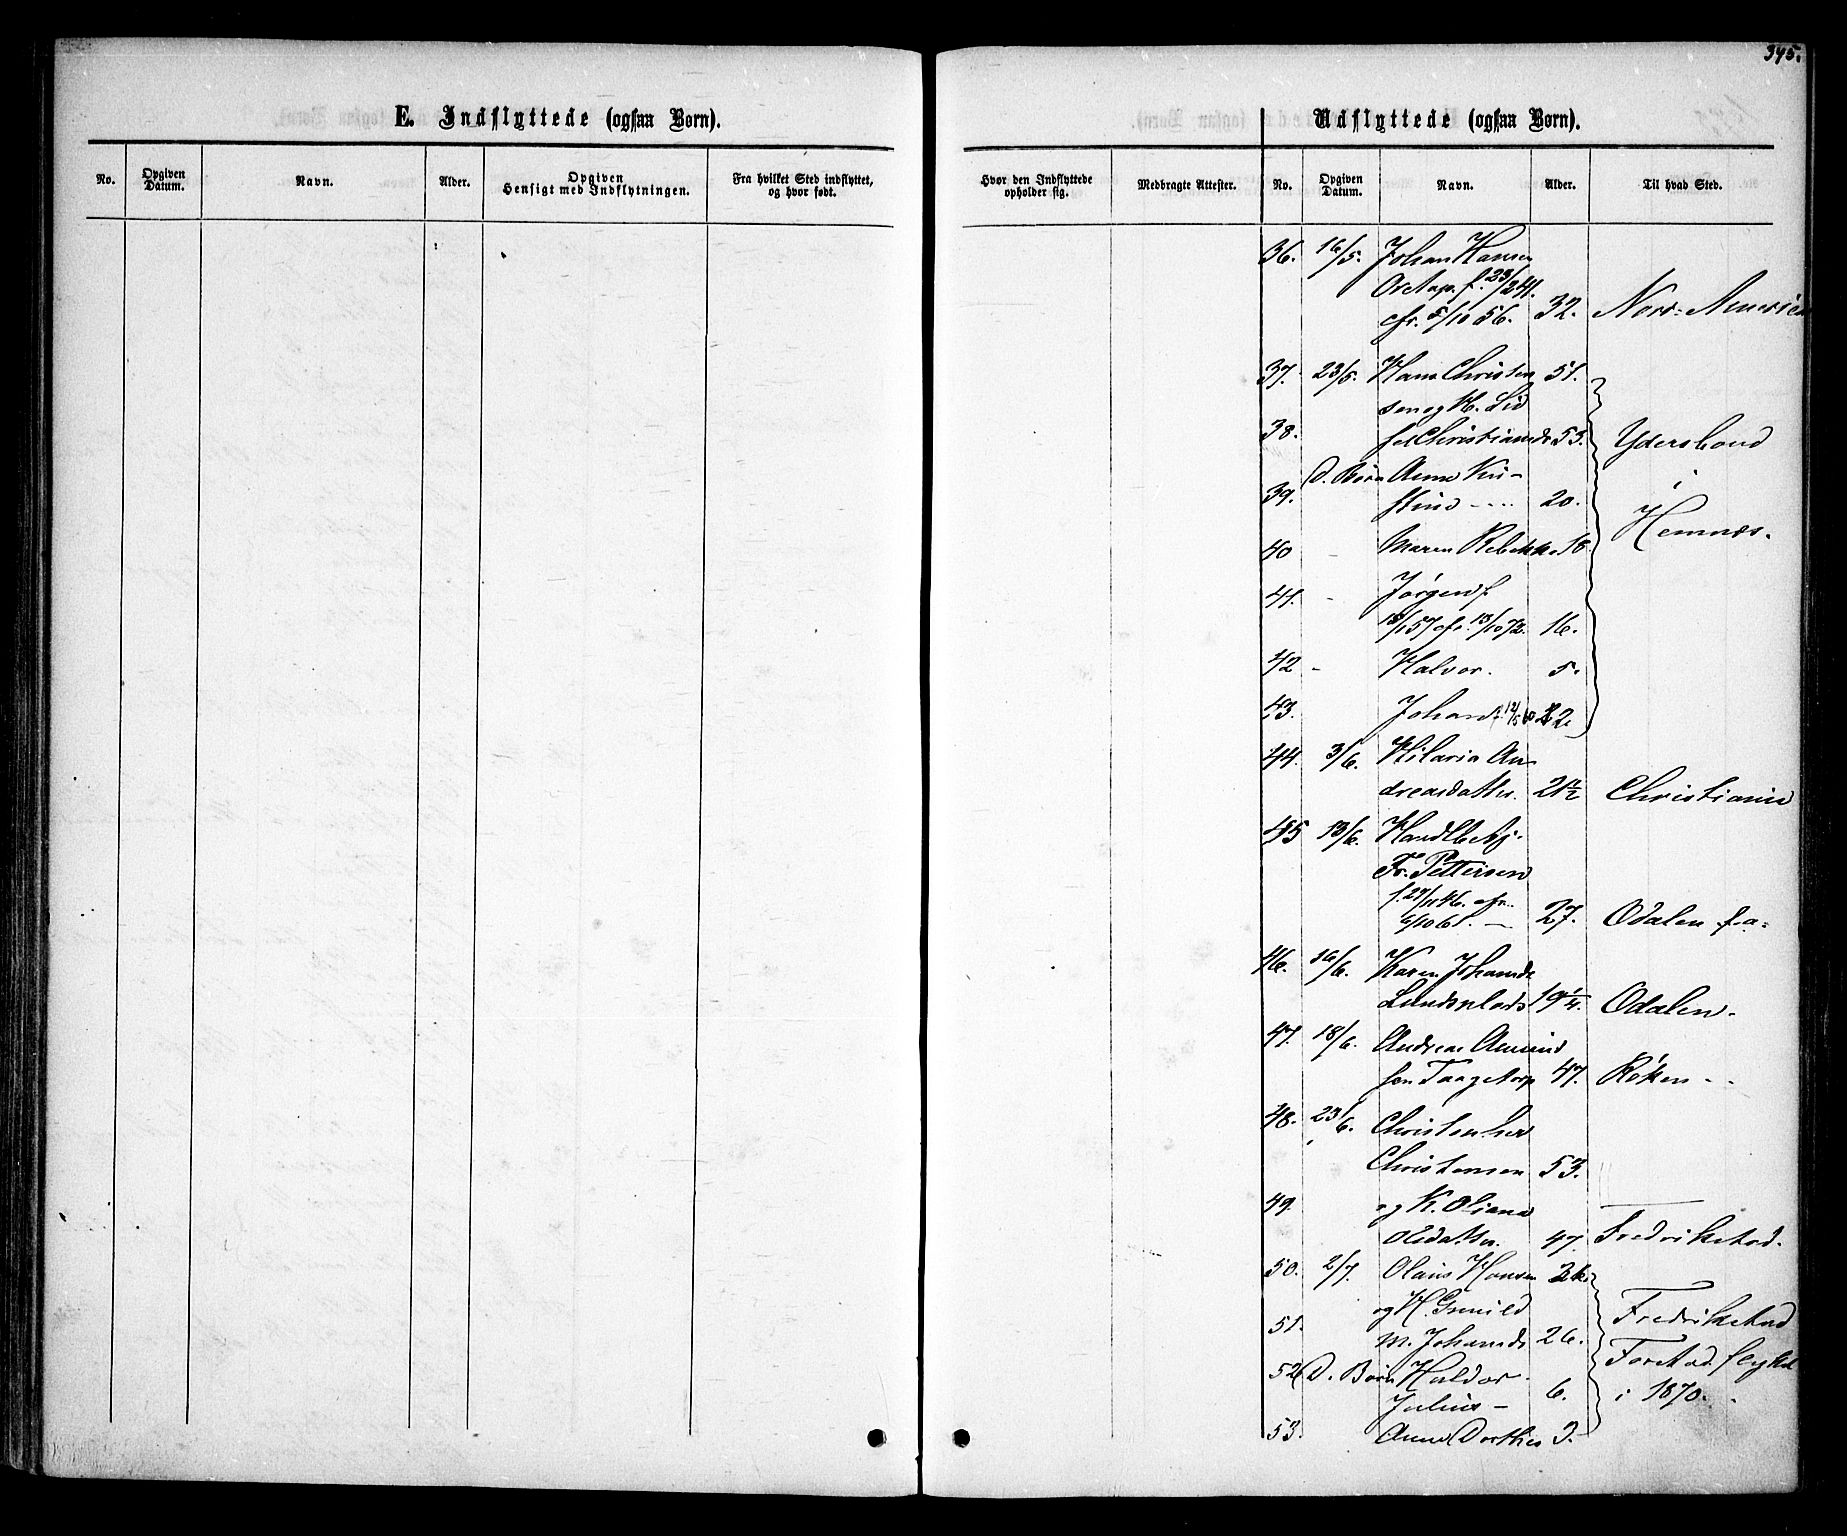 345.
E. Indflyttede (ogsaa Børn).
Udflyttede (ogsaa Børn).
No. Opgiven Datum. Navn. Alder. Opgiven Hensigt med Indflytningen. Fra hvilket Sted indflyttet, og hvor født.
Hvor den Indflyttede opholder sig. Medbragte Attester. No. Opgiven Datum. Navn. Alder. Til hvad Sted.
36. 16/5. Johan Hansen
f. 23/2 41.
cfr. 5/10 56. 32. Nord-America
37. 23/5. Hans Christen 51.
sen og H. Lid
38. fel Christiansdr 53. Yderslund
D. Børn Anne Kir-
39. stine - .... 20. i
Hemnæs.
40 - Maren Rebekka 18
41. - Jørgen f.
18/1 57 cfr. 13/10 72. 16.
42 - Halvor. 5.
43. Johan f. 12/5 60 22
44. 3/6. Hilaria An-
dreasdatter. 21 1/2 Christiania
45 13/6. Handlbetj.
Fr. Pettersen
f. 27/11 46. cfr.
6/10 61. - 27. Odalen
46. 16/6. Karen Johansdr
Lundsplads 19 1/4. Odalen.
47. 18/6. Andreas Amund
sen Taagetorp 47. Røken - -
48. 23/6. Christopher
Christensen 53.
49. og K. Oliana
Olsdatter. 47. Fredrikstad.
50. 2/7. Olaus Hansen
og H. Gunild Fredrikstad
51. M. Johansdr 26.
Forstad flyttet
52 D. Børn Haldor
Julius - 6. i 1870.
53. Anne Dorthea 3.